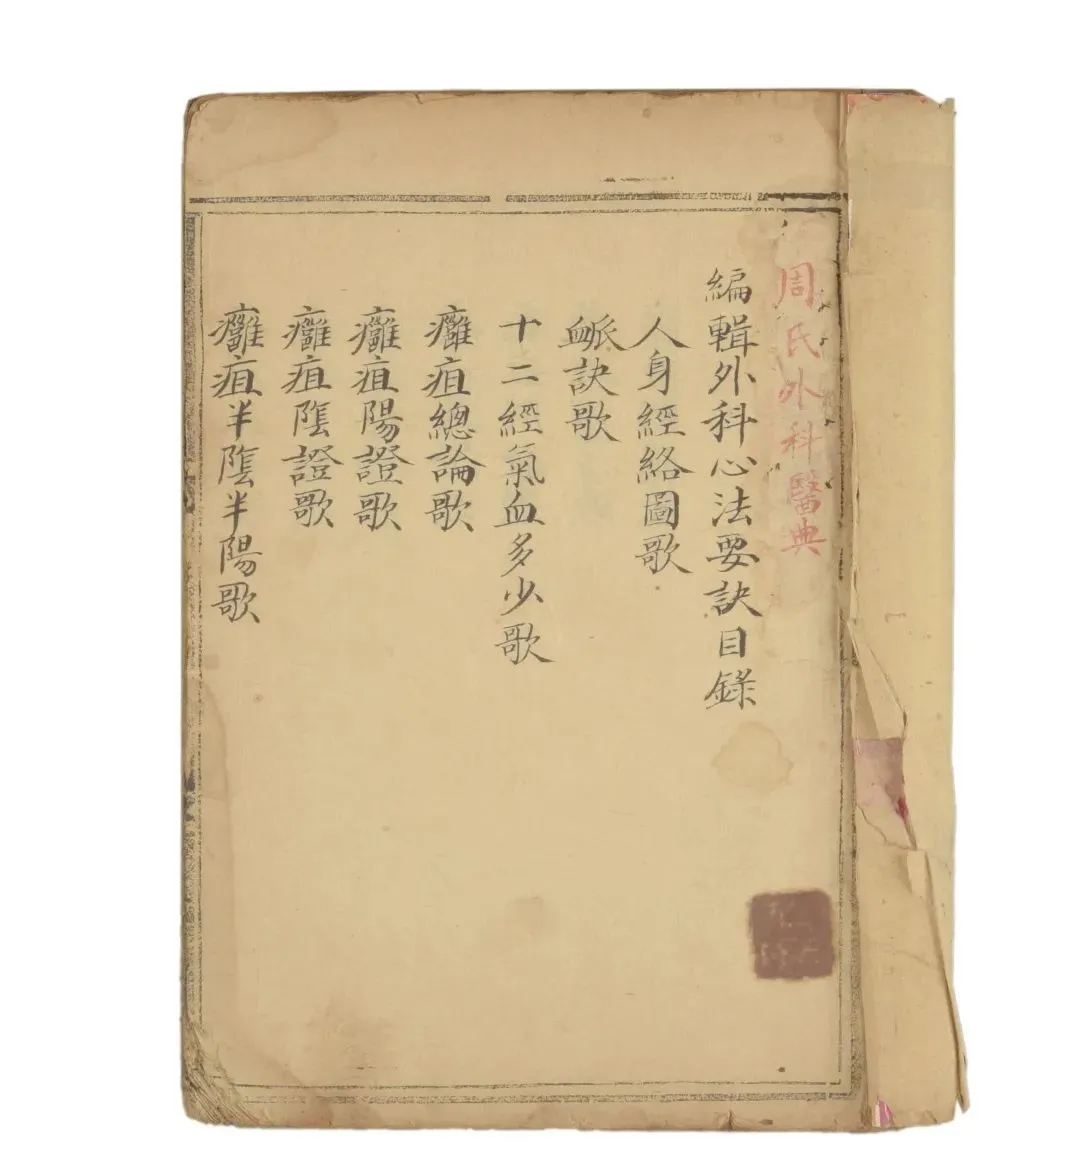 周氏外科醫典
編輯外科心法要訣目錄
人身經絡圖歌
衇訣歌
十二經氣血多少歌
癰疽總論歌
癰疽陽證歌
癰疽陰證歌
癰疽半陰半陽歌